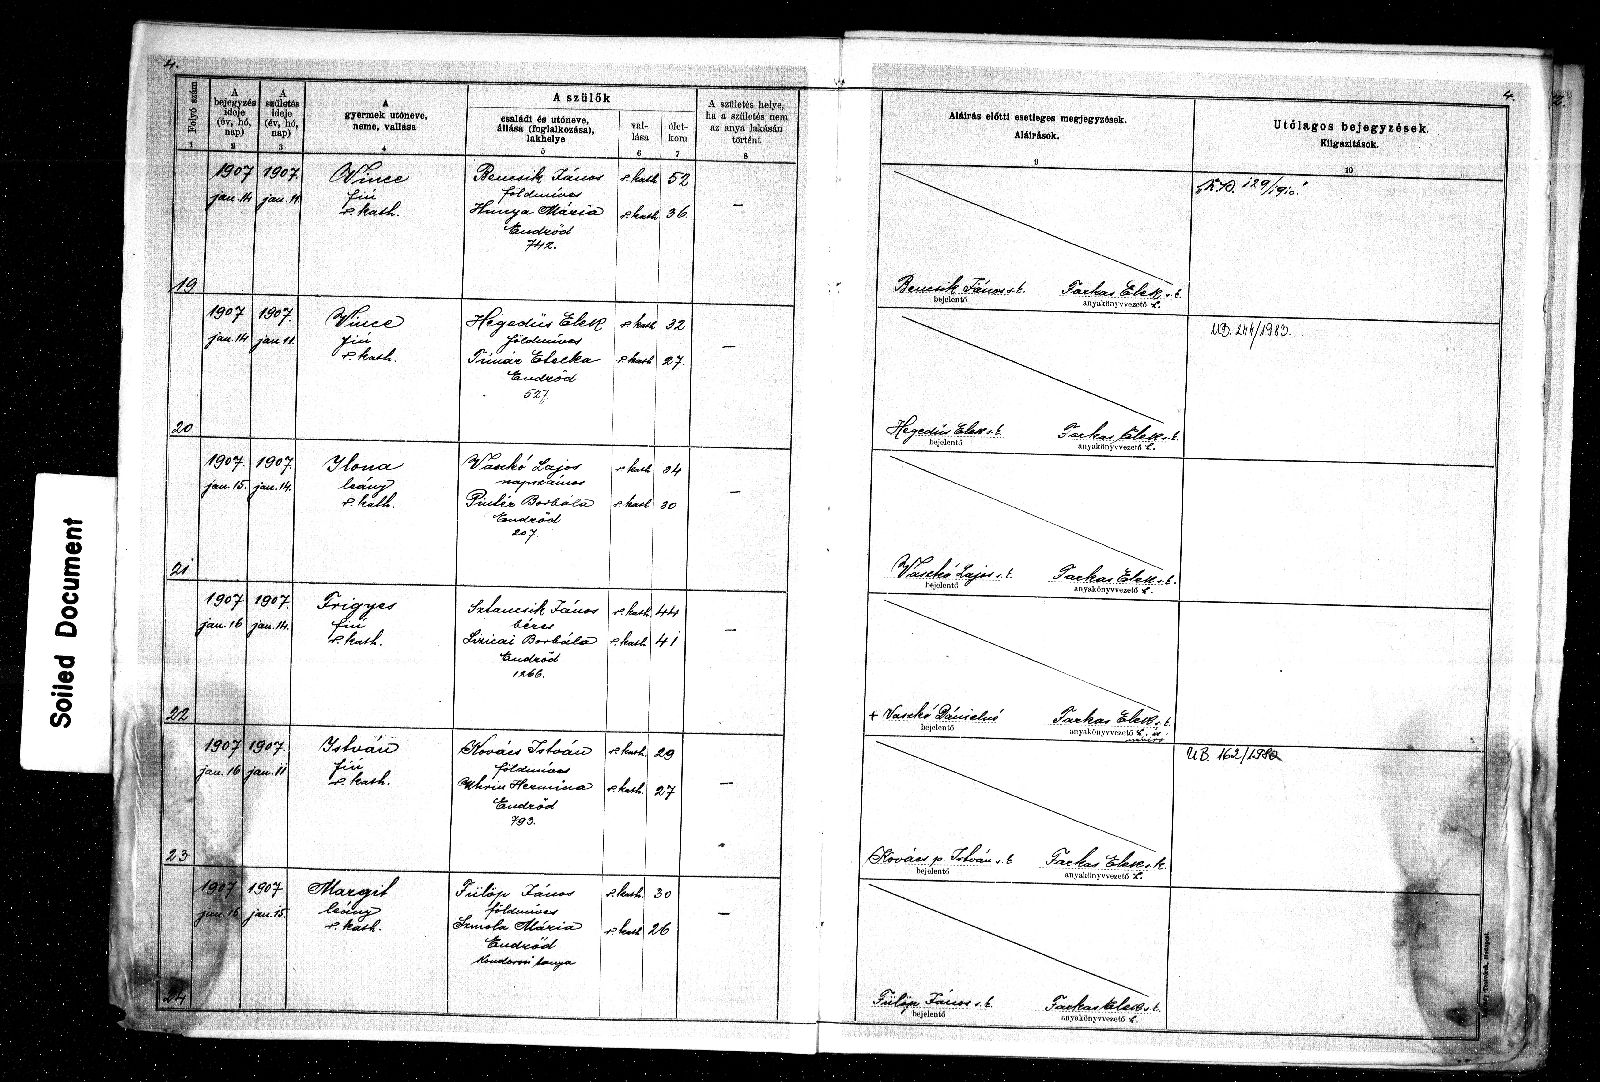 Soiled Document
4.
Folyó szám
A bejegyzés ideje (év, hó, nap)
A születés ideje (év, hó, nap)
A gyermek utóneve, neme, vallása
A szülők
családi és utóneve, állása (foglalkozása), lakhelye
val-lása
élet-kora
A születés helye, ha a születés nem az anya lakásán történt
1 2 3 4 5 6 7 8
1907 1907 Vince Bencsik János r. kath. 52
jan. 14 jan. 11. fiú földmíves
r. kath. Hunya Mária r. kath. 36. —
Endrőd
742.
19
1907 1907. Vince Hegedüs Elek r. kath. 32
jan. 14 jan. 11. fiú földmíves
r. kath. Timár Etelka r. kath. 27. —
Endrőd
527.
20
1907. 1907. Ilona Vaszkó Lajos r. kath. 34
jan. 15. jan. 14. leány napszámos
r. kath. Pintér Borbála r. kath. 30 —
Endrőd
207.
21
1907 1907. Frigyes Sztancsik János r. kath. 44
jan. 16 jan. 14. fiú béres
r. kath. Borbála r. kath. 41 —
Endrőd
1266.
22
1907 1907. István Kovács István r. kath. 29
jan. 16 jan. 11 fiú földmíves
r. kath. Uhrin Hermina r. kath. 27 —
Endrőd
793.
23
1907 1907 Margit Fülöp János r. kath. 30
jan. 16 jan. 15. leány földmíves
r. kath. Szmola Mária r. kath. 26 —
Endrőd
Kondorosi tanya
24
4.
Aláírás előtti esetleges megjegyzések.
Aláírások.
Utólagos bejegyzések.
Kiigazítások.
9 10
129/1910.
Bencsik János s. k. Farkas Elek s. k.
bejelentő anyakönyvvezető h.
UB. 244/1983.
Hegedüs Elek s. k. Farkas Elek s. k.
bejelentő anyakönyvvezető h.
Vaszkó Lajos s. k. Farkas Elek s. k.
bejelentő anyakönyvvezető h.
+ Vaszkó Dánielné Farkas Elek s. k.
bejelentő anyakönyvvezető h. és
névíró
UB. 162/1980
Kovács p István s. k. Farkas Elek s. k.
bejelentő anyakönyvvezető h.
Fülöp János s. k. Farkas Elek s. k.
bejelentő anyakönyvvezető h.